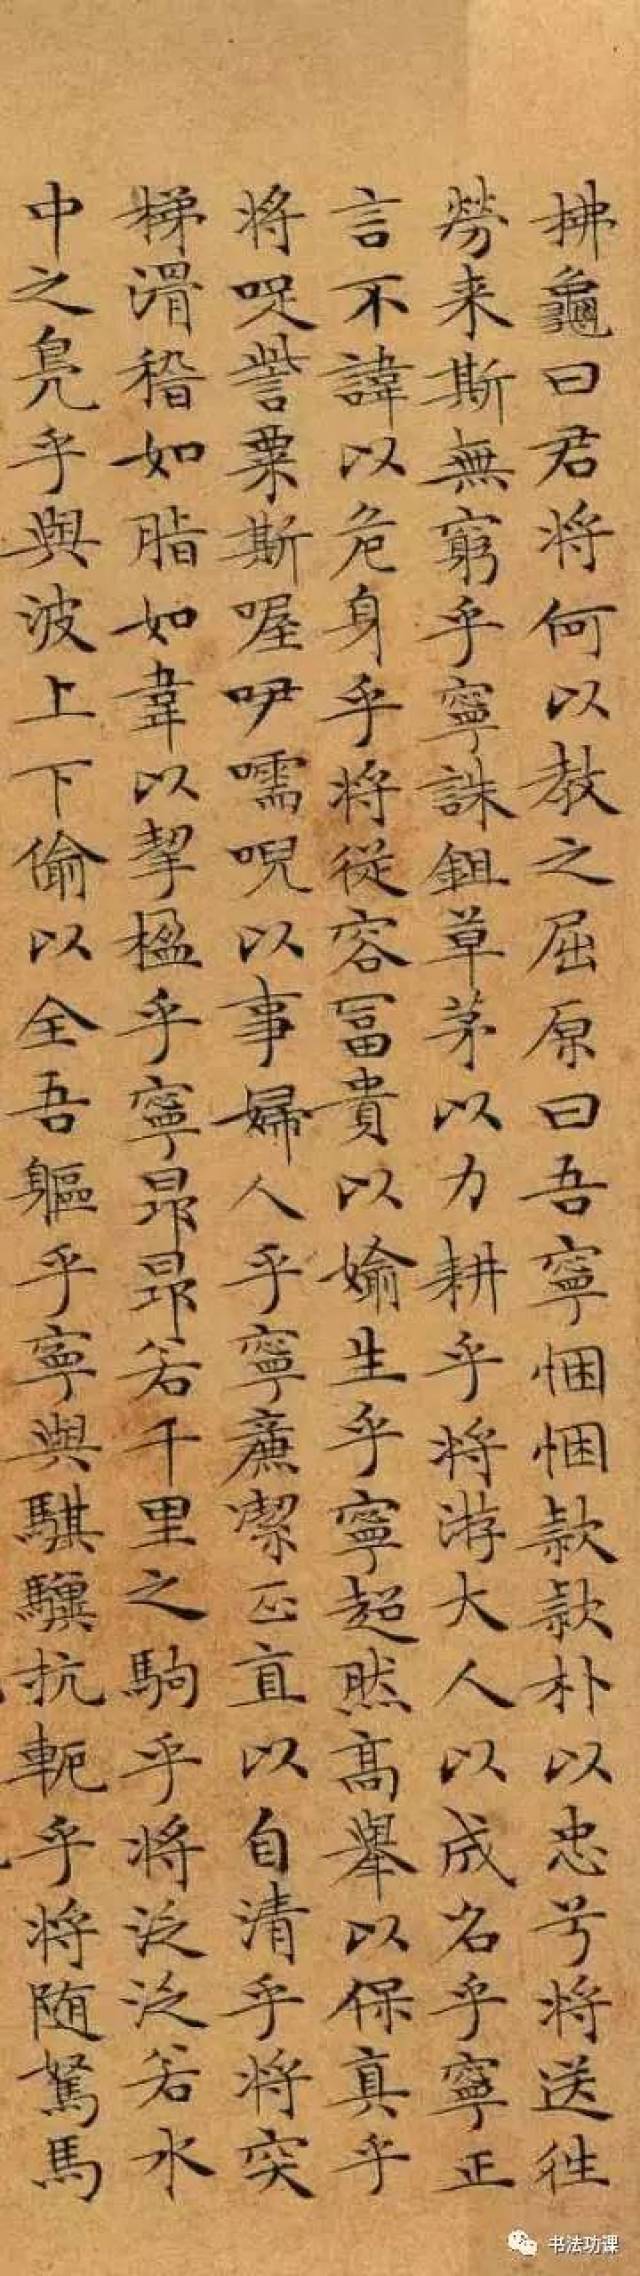 拂龜曰君将何以教之屈原曰吾寧悃悃款款朴以忠兮将送徃
勞来斯無窮乎寧誅鉏草茅以力耕乎将游大人以成名乎寧正
言不諱以危身乎将從容冨貴以媮生乎寧超然高舉以保真乎
将哫訾粟斯喔吚嚅唲以事婦人乎寧廉潔正直以自清乎将突
梯滑稽如脂如韋以挈楹乎寧昂昂若千里之駒乎将泛泛若水
中之鳧乎與波上下偷以全吾軀乎寧與騏驥抗軛乎将随駑馬
书法功课